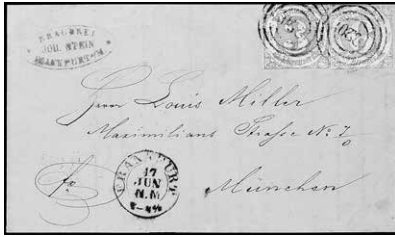 BRAUEREI
JOH. STEIN
FRANKFURT a/M
220
220
Herrn Louis Miller
Maximilians Strasse No. 7
fr.
FRANKFURT
17
JUN
N.M
München